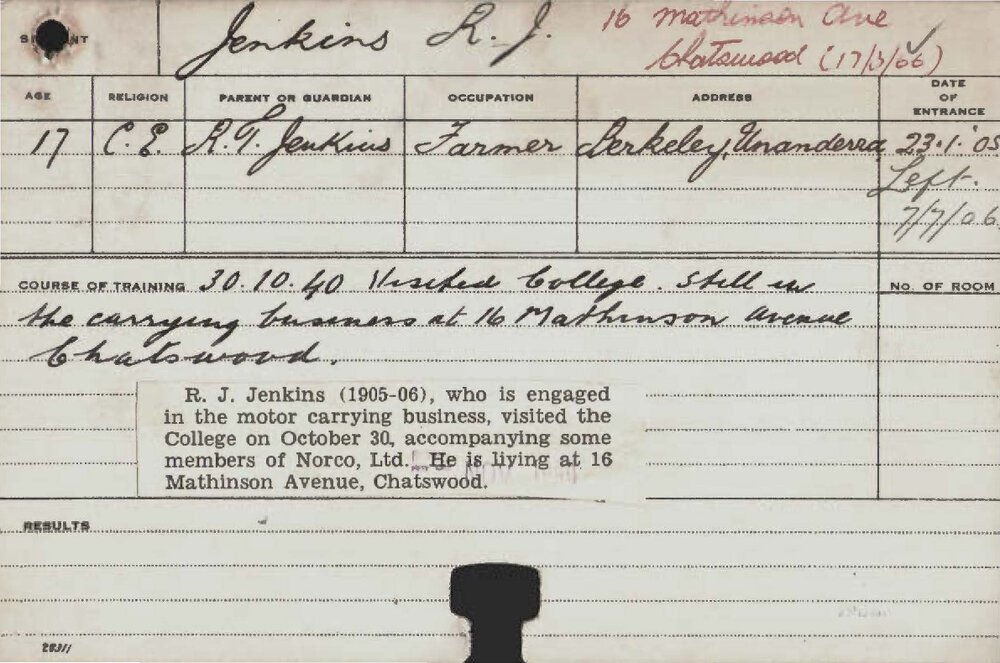 Jenkins R. J. 16 Mathinson Ave
Chatswood (17/3/66)
AGE RELIGION PARENT OR GUARDIAN OCCUPATION ADDRESS DATE OF ENTRANCE
17 C. E. R. T. Jenkins Farmer Berkeley, Unanderra 23.1.'05
Left.
7/7/06
COURSE OF TRAINING 30.10.40 Visited College. Still in NO. OF ROOM
the carrying business at 16 Mathinson Avenue
Chatswood.
R. J. Jenkins (1905-06), who is engaged
in the motor carrying business, visited the
College on October 30, accompanying some
members of Norco, Ltd. He is living at 16
Mathinson Avenue, Chatswood.
RESULTS